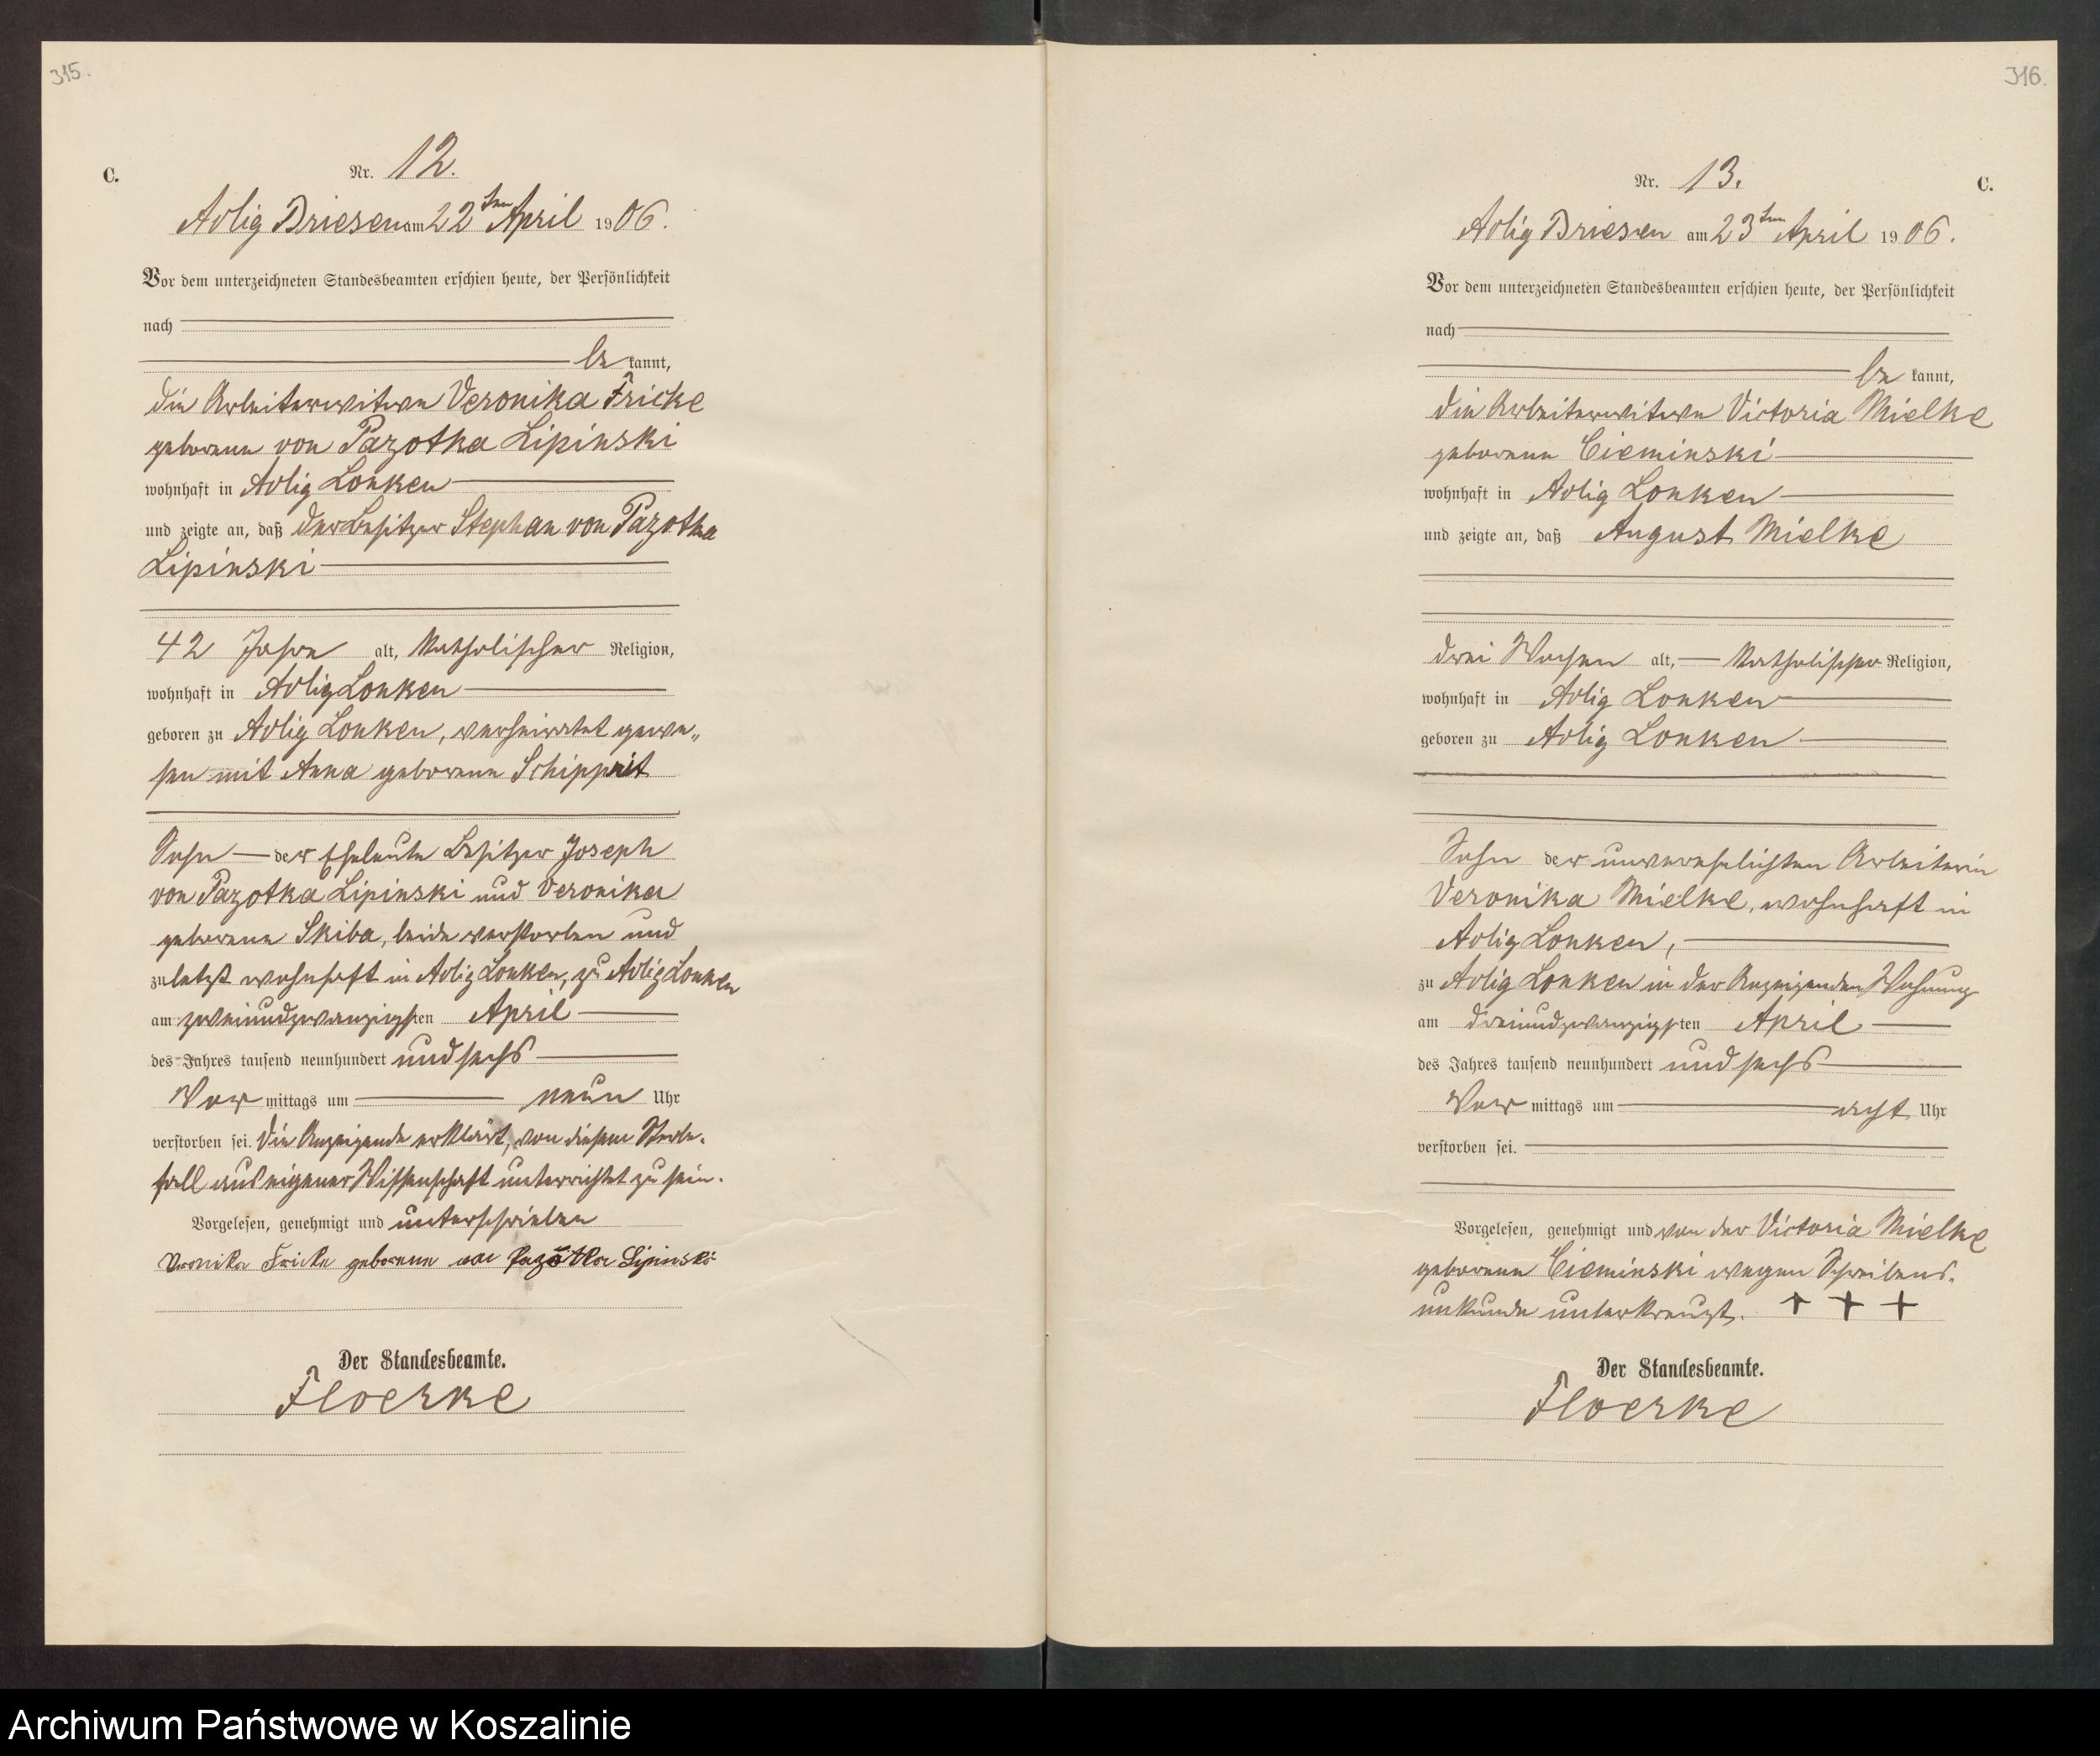 315.
C.
Nr. 12.
Adlig Briesen am 22ten April 1906.
Vor dem unterzeichneten Standesbeamten erschien heute, der Persönlichkeit
nach
be kannt,
die Arbeiterwitwe Veronika Fricke
geborene von Pazotka Lipinski
wohnhaft in Adlig Lonken
und zeigte an, daß der Besitzer Stephan von Pazotka
Lipinski
42 Jahre alt, katholischer Religion,
wohnhaft in Adlig Lonken
geboren zu Adlig Lonken, verheiratet gewe„
sen mit Anna geborene Schippeit
Sohn der Eheleute Besitzer Joseph
von Pazotka Lipinski und Veronika
geborene Skiba, beide verstorben und
zuletzt wohnhaft in Adlig Lonken, zu Adlig Lonken
am zweiundzwanzigsten April
des Jahres tausend neunhundert und sechs
Vor mittags um neun Uhr
verstorben sei. Die Anzeigende erklärt, von diesem Sterbe-
fall aus eigener Wissenschaft unterrichtet zu sein.
Vorgelesen, genehmigt und unterschrieben
Veronika Fricke geborene von Pazotka Lipinski
Der Standesbeamte.
Floerke
316.
C.
Nr. 13.
Adlig Briesen am 23ten April 1906.
Vor dem unterzeichneten Standesbeamten erschien heute, der Persönlichkeit
nach
be kannt,
die Arbeiterwitwe Victoria Mielke
geborene Cieminski
wohnhaft in Adlig Lonken
und zeigte an, daß August Mielke
drei Wochen alt, katholischer Religion,
wohnhaft in Adlig Lonken
geboren zu Adlig Lonken
Sohn der unverehelichten Arbeiterin
Veronika Mielke, wohnhaft in
Adlig Lonken,
zu Adlig Lonken in der Anzeigenden Wohnung
am dreiundzwanzigsten April
des Jahres tausend neunhundert und sechs
Vor mittags um acht Uhr
verstorben sei.
Vorgelesen, genehmigt und von der Victoria Mielke
geborene Cieminski wegen Schreibens-
unkunde unterkreuzt. + + +
Der Standesbeamte.
Floerke
Archiwum Państwowe w Koszalinie